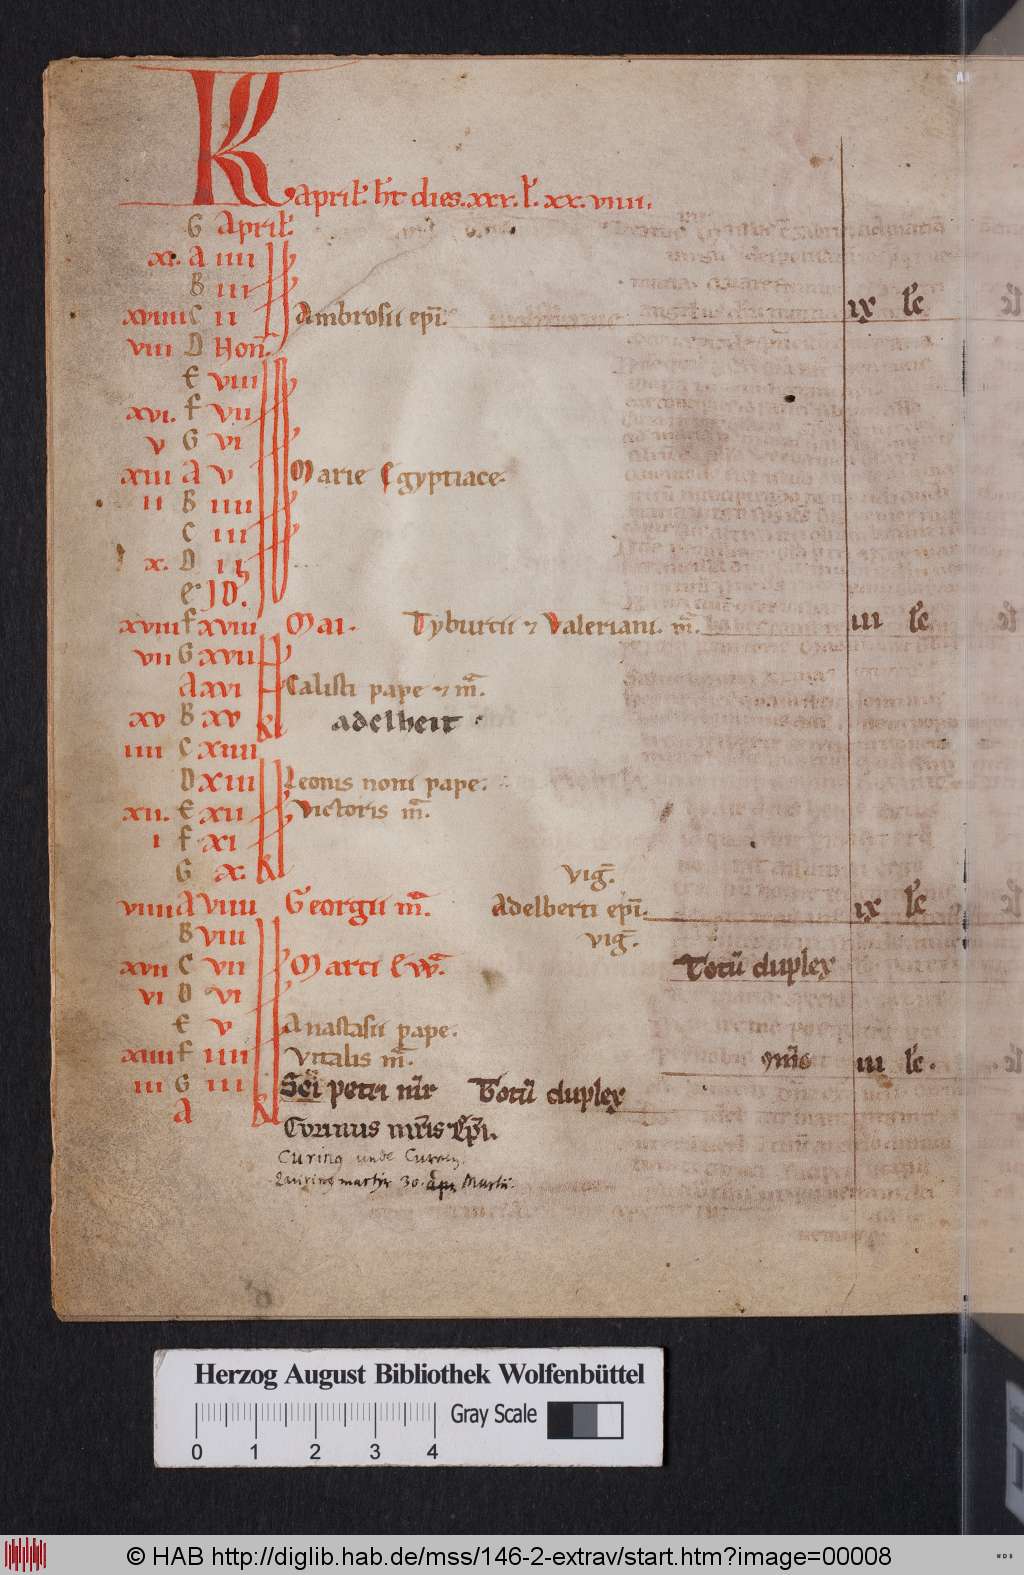 K April. ht dies. xxx. l. xx. viiii.
G April.
xi. A iiii
B iii
xviiii C ii Ambrosii epi. ix lc
viii D Non.
E viii
xvi. f vii
v G vi
xiii A v Marie Egyptiace.
ii B iiii
C iii
x. D ii
e ID.
xviii f xviii Mai. Tyburtii ⁊ Valeriani. m. iii lc
vii G xvii
A xvi Calisti pape ⁊ m.
xv B xv adelheit
iiii C xiiii
D xiii Leonis noni pape.
xii. E xii Victoris m.
i f xi
G x. vig.
viiii A viiii Georgii m. Adelberti epi. ix lc
B viii vig.
xvii C vii Marci Ew. Totu duplex
vi D vi
E v Anastasii pape.
xiiii f iiii Vitalis m. iii lc.
iii G iii Sci petri mr Totu duplex
A
martyr 30. Martii.
Herzog August Bibliothek Wolfenbüttel
Gray Scale
0 1 2 3 4
© HAB http://diglib.hab.de/mss/146-2-extrav/start.htm?image=00008